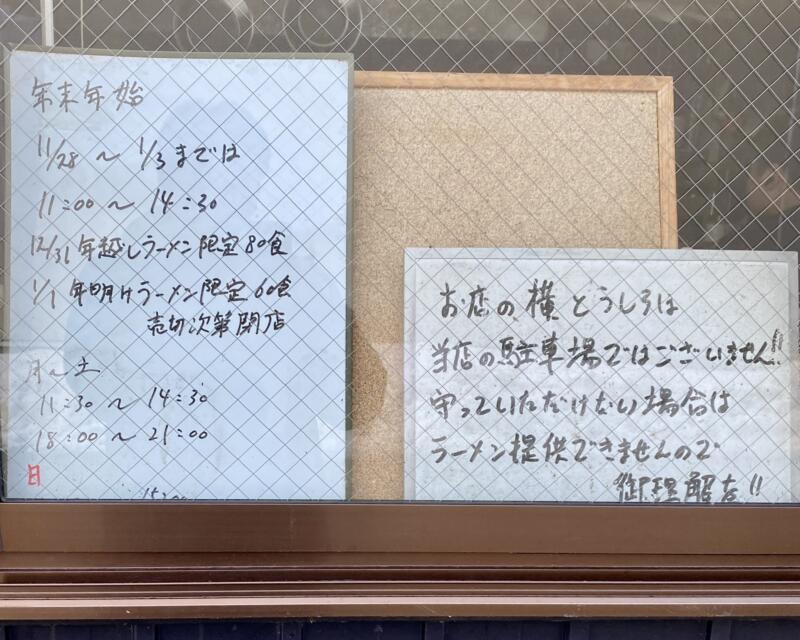 年末年始
11/28 ~ 1/3までは
11:00 ~ 14:30
12/31 年越しラーメン限定80食
1/1 年明けラーメン限定60食
売切次第閉店
月~土
11:30 ~ 14:30
18:00 ~ 21:00
日
お店の横とうしろは
当店の駐車場ではございません!!
守っていただけない場合は
ラーメン提供できませんので
御理解を!!